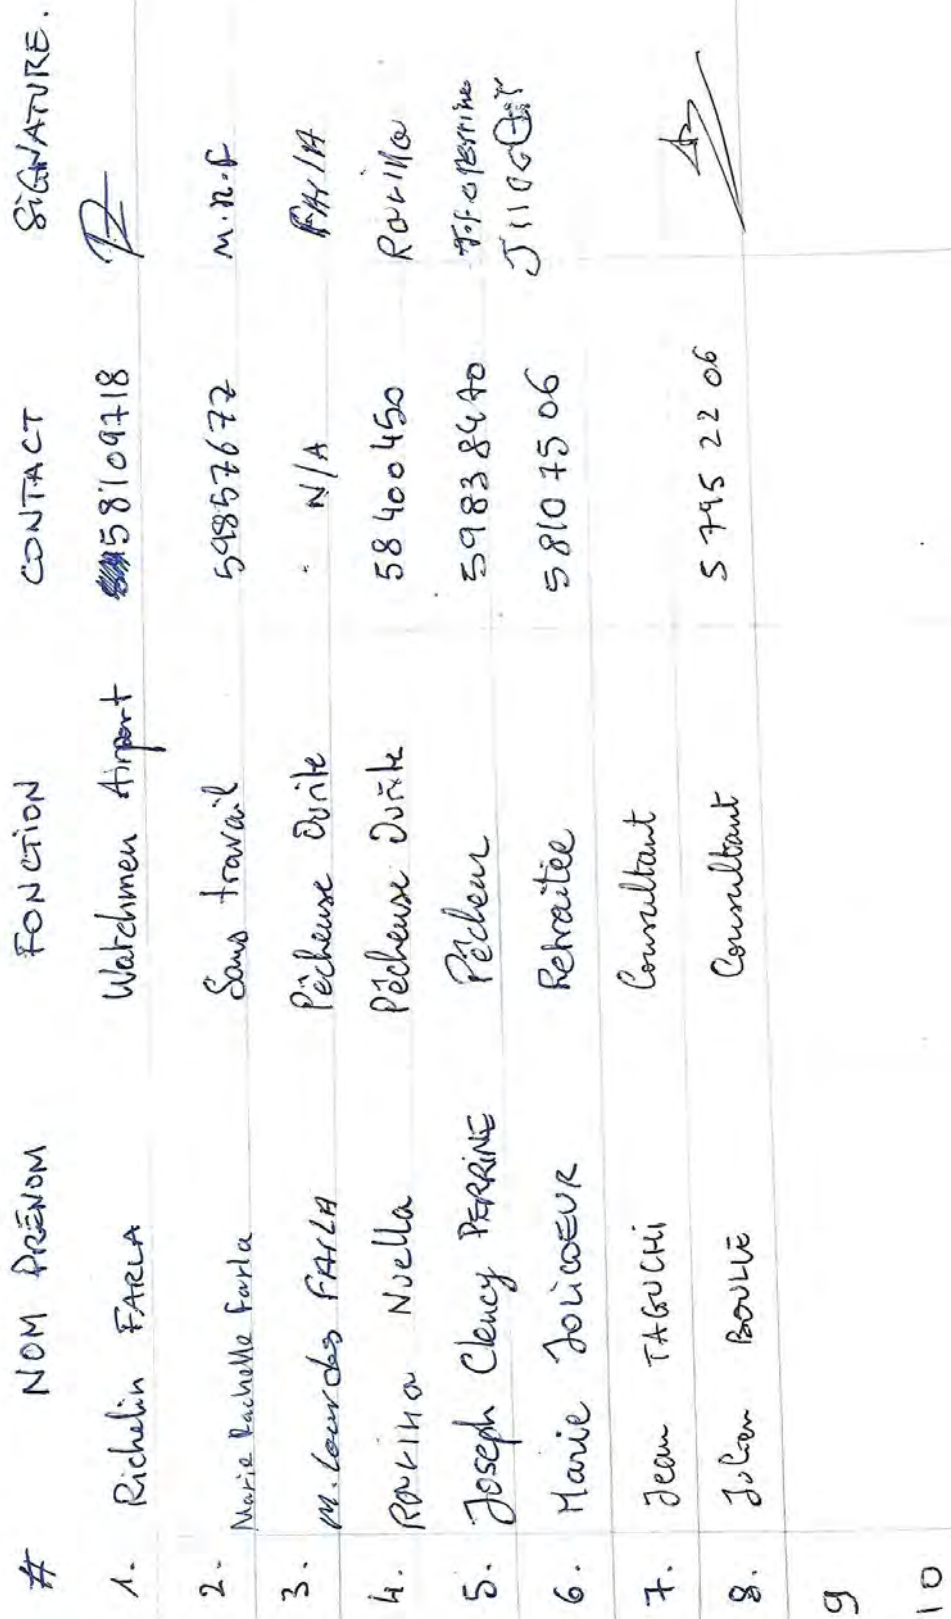 # NOM PRÉNOM FONCTION CONTACT SIGNATURE.
1. Richelin FARLA Watchmen Airport 58109718
2. Marie Rachelle Farla Sans travail 59857677 M.R.F
3. M. Lourdes FARLA Pêcheuse Ourite N/A FARLA
4. Nuella Pêcheuse Ourite 58400450
5. Joseph Clency PERRINE Pêcheur 59838470 Perrine
6. Marie JOLICOEUR Retraitée 58107506
7. Jean TAGUCHI Consultant
8. Julien BOULLÉ Consultant 5 795 22 06
9
10